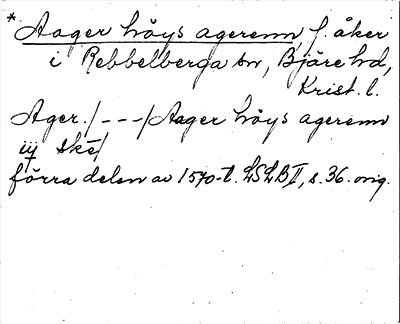 * Aager höys agerenn, f. åker
i Rebbelberga sn, Bjäre hd,
Krist. l.
Ager. /---/ Aager höys agerenn
iij ske/
förra delen av 1570-t. LSLB II, s. 36. orig.